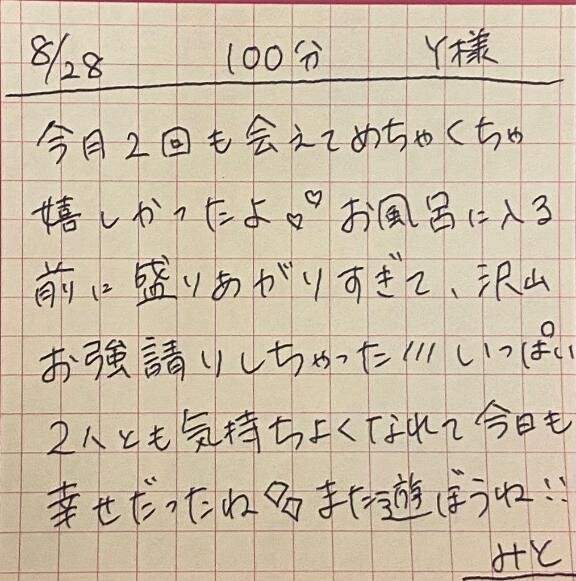 8/28 100分 Y様
今月2回も会えてめちゃくちゃ
嬉しかったよ♡♡ お風呂に入る
前に盛りあがりすぎて、沢山
お強請りしちゃった!!! いっぱい
2人とも気持ちよくなれて今日も
幸せだったね また遊ぼうね!!
みと